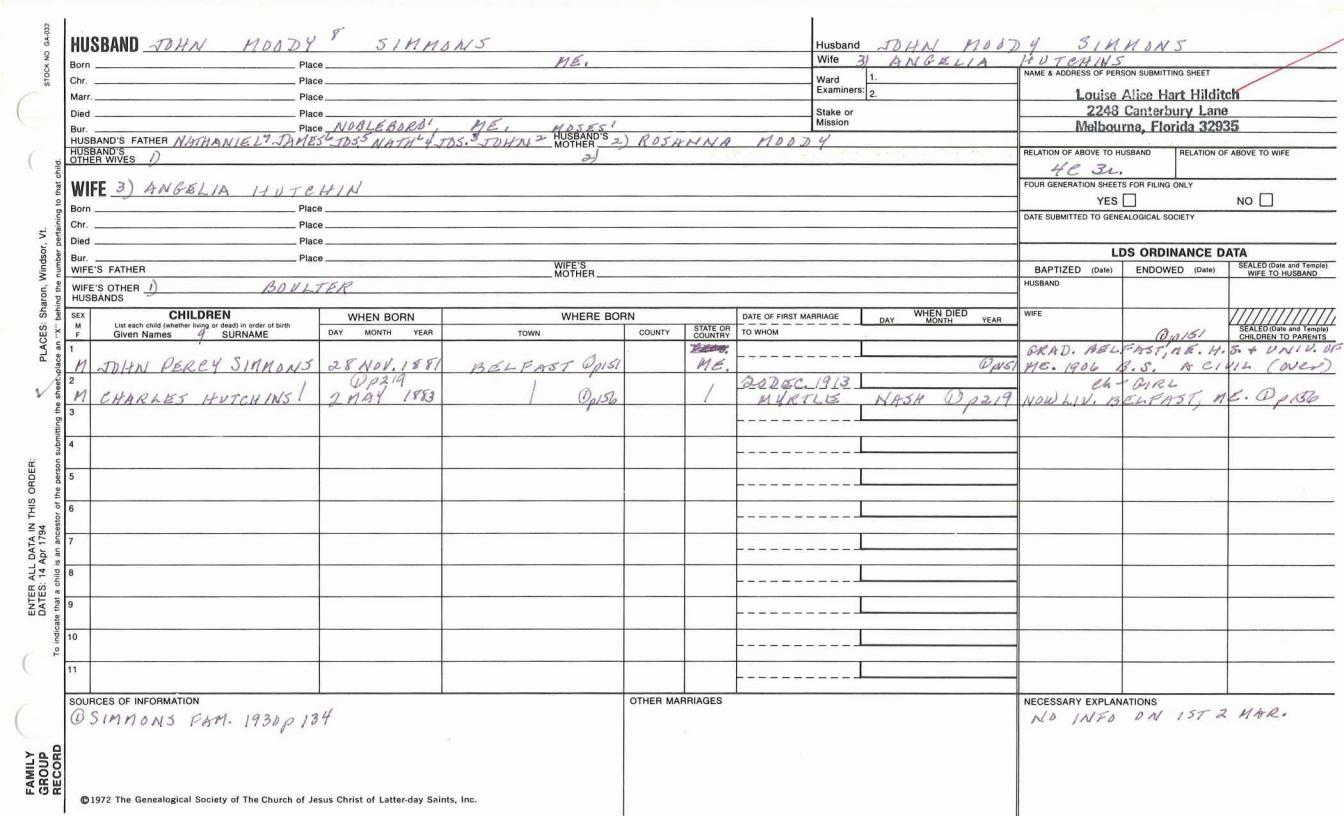 STOCK NO GA-032
HUSBAND JOHN MOODY 8 SIMMONS
Born Place ME.
Chr. Place
Marr. Place
Died Place
Bur. Place NOBLEBORO, ME. MOSES1
HUSBAND'S FATHER NATHANIEL7 JAMES6 JOS5 NATHL4 JOS.3 JOHN2 HUSBAND'S MOTHER 2) ROSANNA MOODY
HUSBAND'S OTHER WIVES 1) 2)
WIFE 3) ANGELIA HUTCHIN
Born Place
Chr. Place
Died Place
Bur. Place
WIFE'S FATHER WIFE'S MOTHER
WIFE'S OTHER HUSBANDS 1) BOULTER
Husband JOHN MOODY SIMMONS
Wife 3) ANGELIA HUTCHINS
Ward Examiners: 1.
2.
Stake or Mission
NAME & ADDRESS OF PERSON SUBMITTING SHEET
Louise Alice Hart Hilditch
2248 Canterbury Lane
Melbourne, Florida 32935
RELATION OF ABOVE TO HUSBAND RELATION OF ABOVE TO WIFE
4C 3r.
FOUR GENERATION SHEETS FOR FILING ONLY
YES NO
DATE SUBMITTED TO GENEALOGICAL SOCIETY
LDS ORDINANCE DATA
BAPTIZED (Date) ENDOWED (Date) SEALED (Date and Temple) WIFE TO HUSBAND
HUSBAND
WIFE
SEALED (Date and Temple) CHILDREN TO PARENTS
SEX M F
CHILDREN
List each child (whether living or dead) in order of birth
Given Names 9 SURNAME
WHEN BORN
DAY MONTH YEAR
WHERE BORN
TOWN COUNTY STATE OR COUNTRY
DATE OF FIRST MARRIAGE
TO WHOM
WHEN DIED
DAY MONTH YEAR
① p151
1 GRAD. BELFAST, ME. H.S. + UNIV. OF
M JOHN PERCY SIMMONS 28 NOV. 1881 BELFAST ① p151 ME. ① p151 ME. 1906 B.S. A CIVIL (OVER)
2 ① p219 20 DEC 1913 ch - GIRL
M CHARLES HUTCHINS 2 MAY 1883 ① p156 MYRTLE NASH ① p219 NOW LIV. BELFAST, ME. ① p156
3
4
5
6
7
8
9
10
11
SOURCES OF INFORMATION
① SIMMONS FAM. 1930 p 134
OTHER MARRIAGES
NECESSARY EXPLANATIONS
NO INFO ON 1ST 2 MAR.
©1972 The Genealogical Society of The Church of Jesus Christ of Latter-day Saints, Inc.
FAMILY GROUP RECORD
ENTER ALL DATA IN THIS ORDER:
DATES: 14 Apr 1794
PLACES: Sharon, Windsor, Vt.
To indicate that a child is an ancestor of the person submitting the sheet, place an "X" behind the number pertaining to that child.